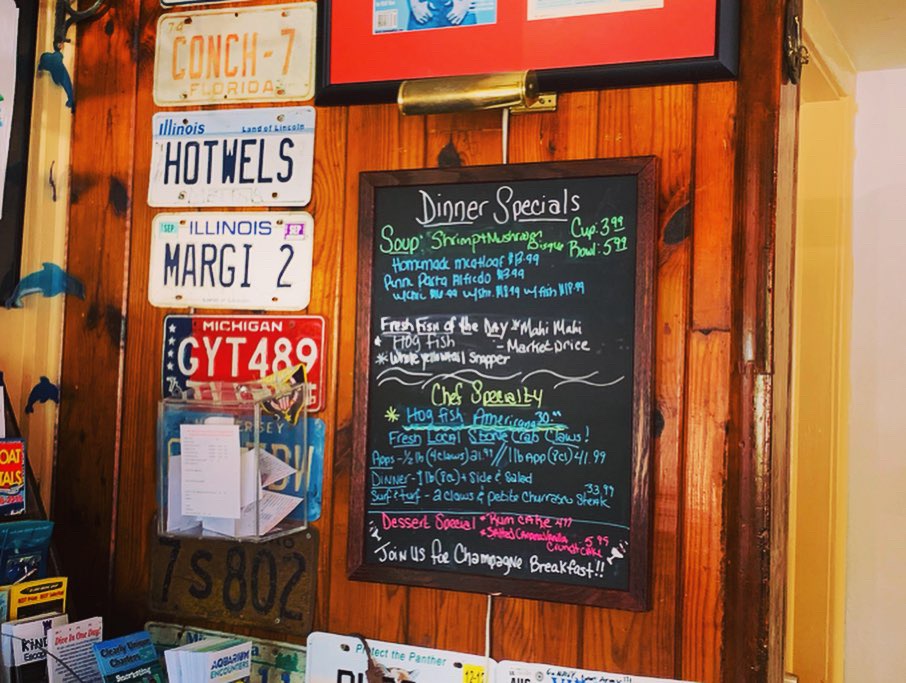 74
CONCH-7
FLORIDA
Illinois Land of Lincoln
HOTWELS
SEP ILLINOIS
MARGI 2
Land of Lincoln
MICHIGAN
GYT489
7S802
Dinner Specials
Soup: Shrimp + Mushroom Bisque Cup: 3.99
Bowl: 5.99
Homemade meatloaf $13.99
Penne Pasta Alfredo
w/ fish
Fresh Fish of the Day * Mahi Mahi
* Hog Fish - Market price
* Whole yellowtail snapper
Chef Specialty
* Hog fish Americana 30.
Fresh Local Stone Crab Claws!
Apps - 1/2 lb (4 claws) 21.99 // 1 lb App (8cl) 41.99
Dinner - 1 lb (8cl) + Side & Salad
Surf & turf - 2 claws & petite Churrasco Steak 33.99
Dessert Special * Rum cake
5.99
Join Us for Champagne Breakfast!!
Dive In One Day
Clearly Unique
Charters
AQUARIUM
ENCOUNTERS
Protect the Panther